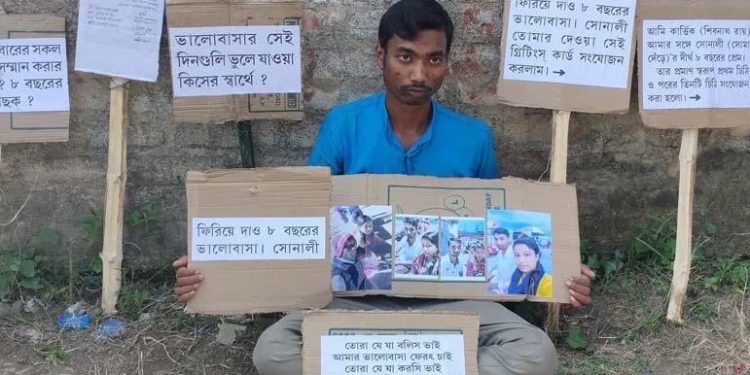 বারের সকল
সম্মান করার
? ৮ বছরের
ছক ?
ভালোবাসার সেই
দিনগুলি ভুলে যাওয়া
কিসের স্বার্থে ?
ফিরিয়ে দাও ৮ বছরের
ভালোবাসা। সোনালী
তোমার দেওয়া সেই
গ্রিটিংস্ কার্ড সংযোজন
করলাম।→
আমি কার্তিক (শিবনাথ রায়)
আমার সঙ্গে সোনালী
দীর্ঘ ৮ বছরের প্রেম।
তার প্রমাণ স্বরুপ প্রথম চিঠি
ও পরের তিনটি চিঠি সংযোজন
করা হলো।→
ফিরিয়ে দাও ৮ বছরের
ভালোবাসা। সোনালী
তোরা যে যা বলিস ভাই
আমার ভালোবাসা ফেরৎ চাই
তোরা যে যা করসি ভাই